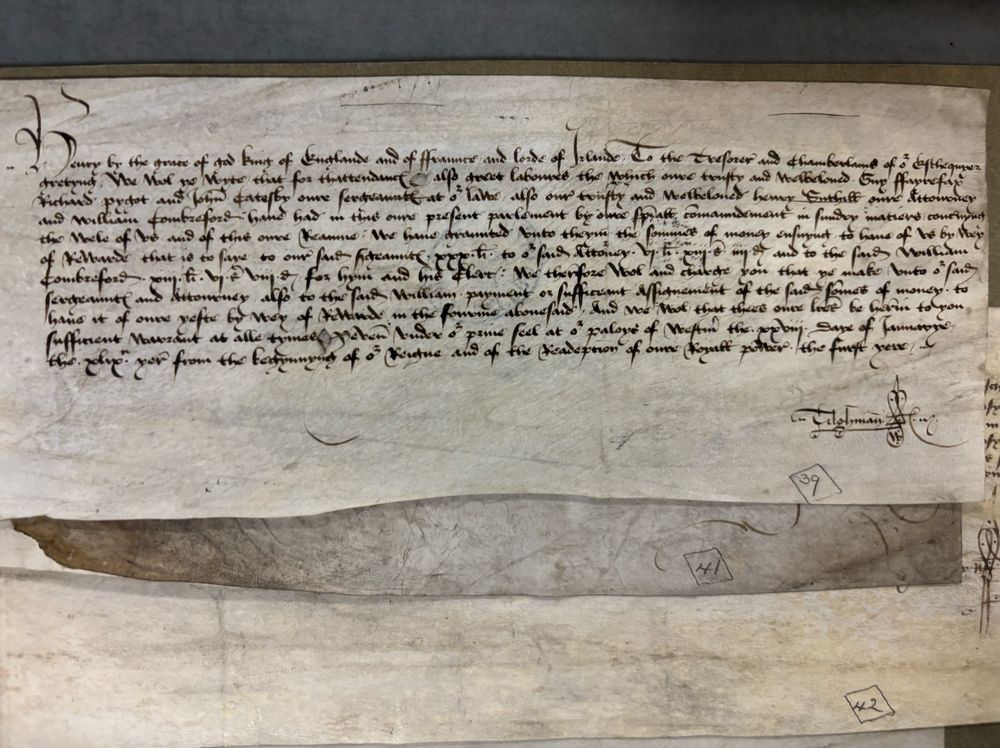 Henry by the grace of god king of Englande and of ffraunce and lorde of Irlande. To the Tresorer and Chamberlains of oʳ Eschequier
gretyng. We wol ye wyte that for thattendance also greet laboures the which oure trusty and welbeloued Guy ffairefax
Richard pygot and John Catesby oure sergeauntes at oʳ lawe. also our trusty and welbeloued henry Sothill oure Attourney
and william Combreford. hane had in this oure present parlement by oure spall comaundement in sundry matiers concernyng
the wele of vs and of this oure Reaume. We haue graunted vnto theym the sommes of money ensuyng to haue of vs by wey
of Rewarde that is to saye to our said sergeauntes. xxx. li. to oʳ said Attorney. vi. li. xiii. s. iiii d. and to the said William
Combreford. xiii. li. vi. s. viii. d. for hym and his Clerc. We therfore wol and charge you that ye make vnto oʳ said
sergeauntes and Attourney also to the said William. payment or sufficeant assignement of the said somes of money. to
haue it of oure yefte by wey of Rewarde in the fourme abouesaid. And we wol that thees oure lres be herin to you
sufficient warant at alle tymes Yeuen vnder oʳ priue seel at oʳ paloys of Westm the. xxviii. daye of Januarye
the. xlix. yer from the begynnyng of oʳ Reigne and of the Readepcion of oure Royall power. the furst yere.
Tilghman
39
41
42